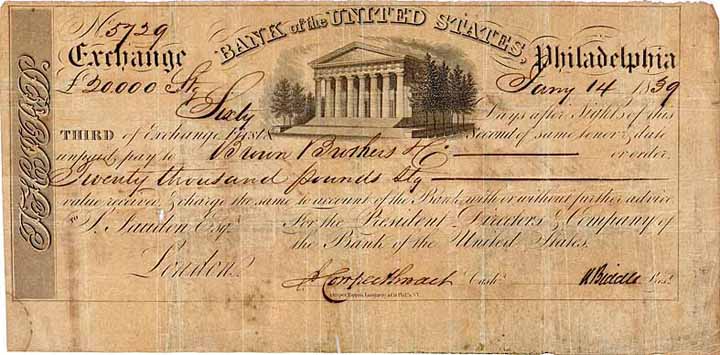 No 5729
BANK of the UNITED STATES,
Exchange Philadelphia
£20,000 Stg Jany 14 1839
Sixty Days after Sight of this
THIRD of Exchange First & Second of same tenor & date
unpaid pay to Brown Brothers & Co or order,
Twenty thousand pounds Stg
value received, & charge the same to account of the Bank with or without further advice
To S. Jaudon Esqr. For the President Directors & Company of
the Bank of the United States.
London
J Cowperthwait Cashr. N Biddle Prest.